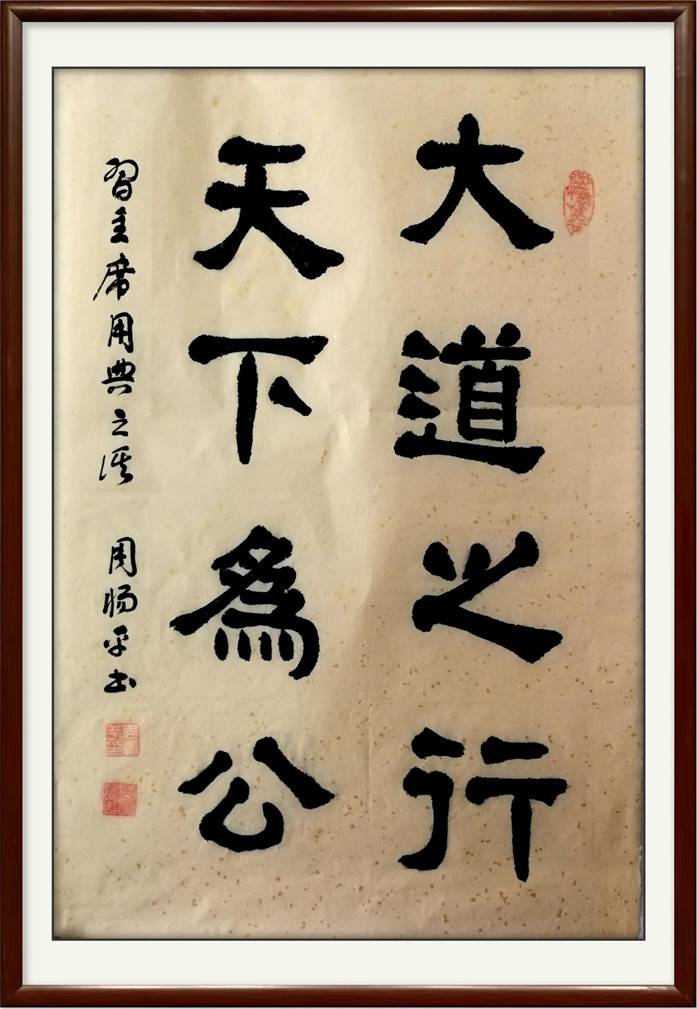 大道之行
天下為公
習主席用典之
周平书